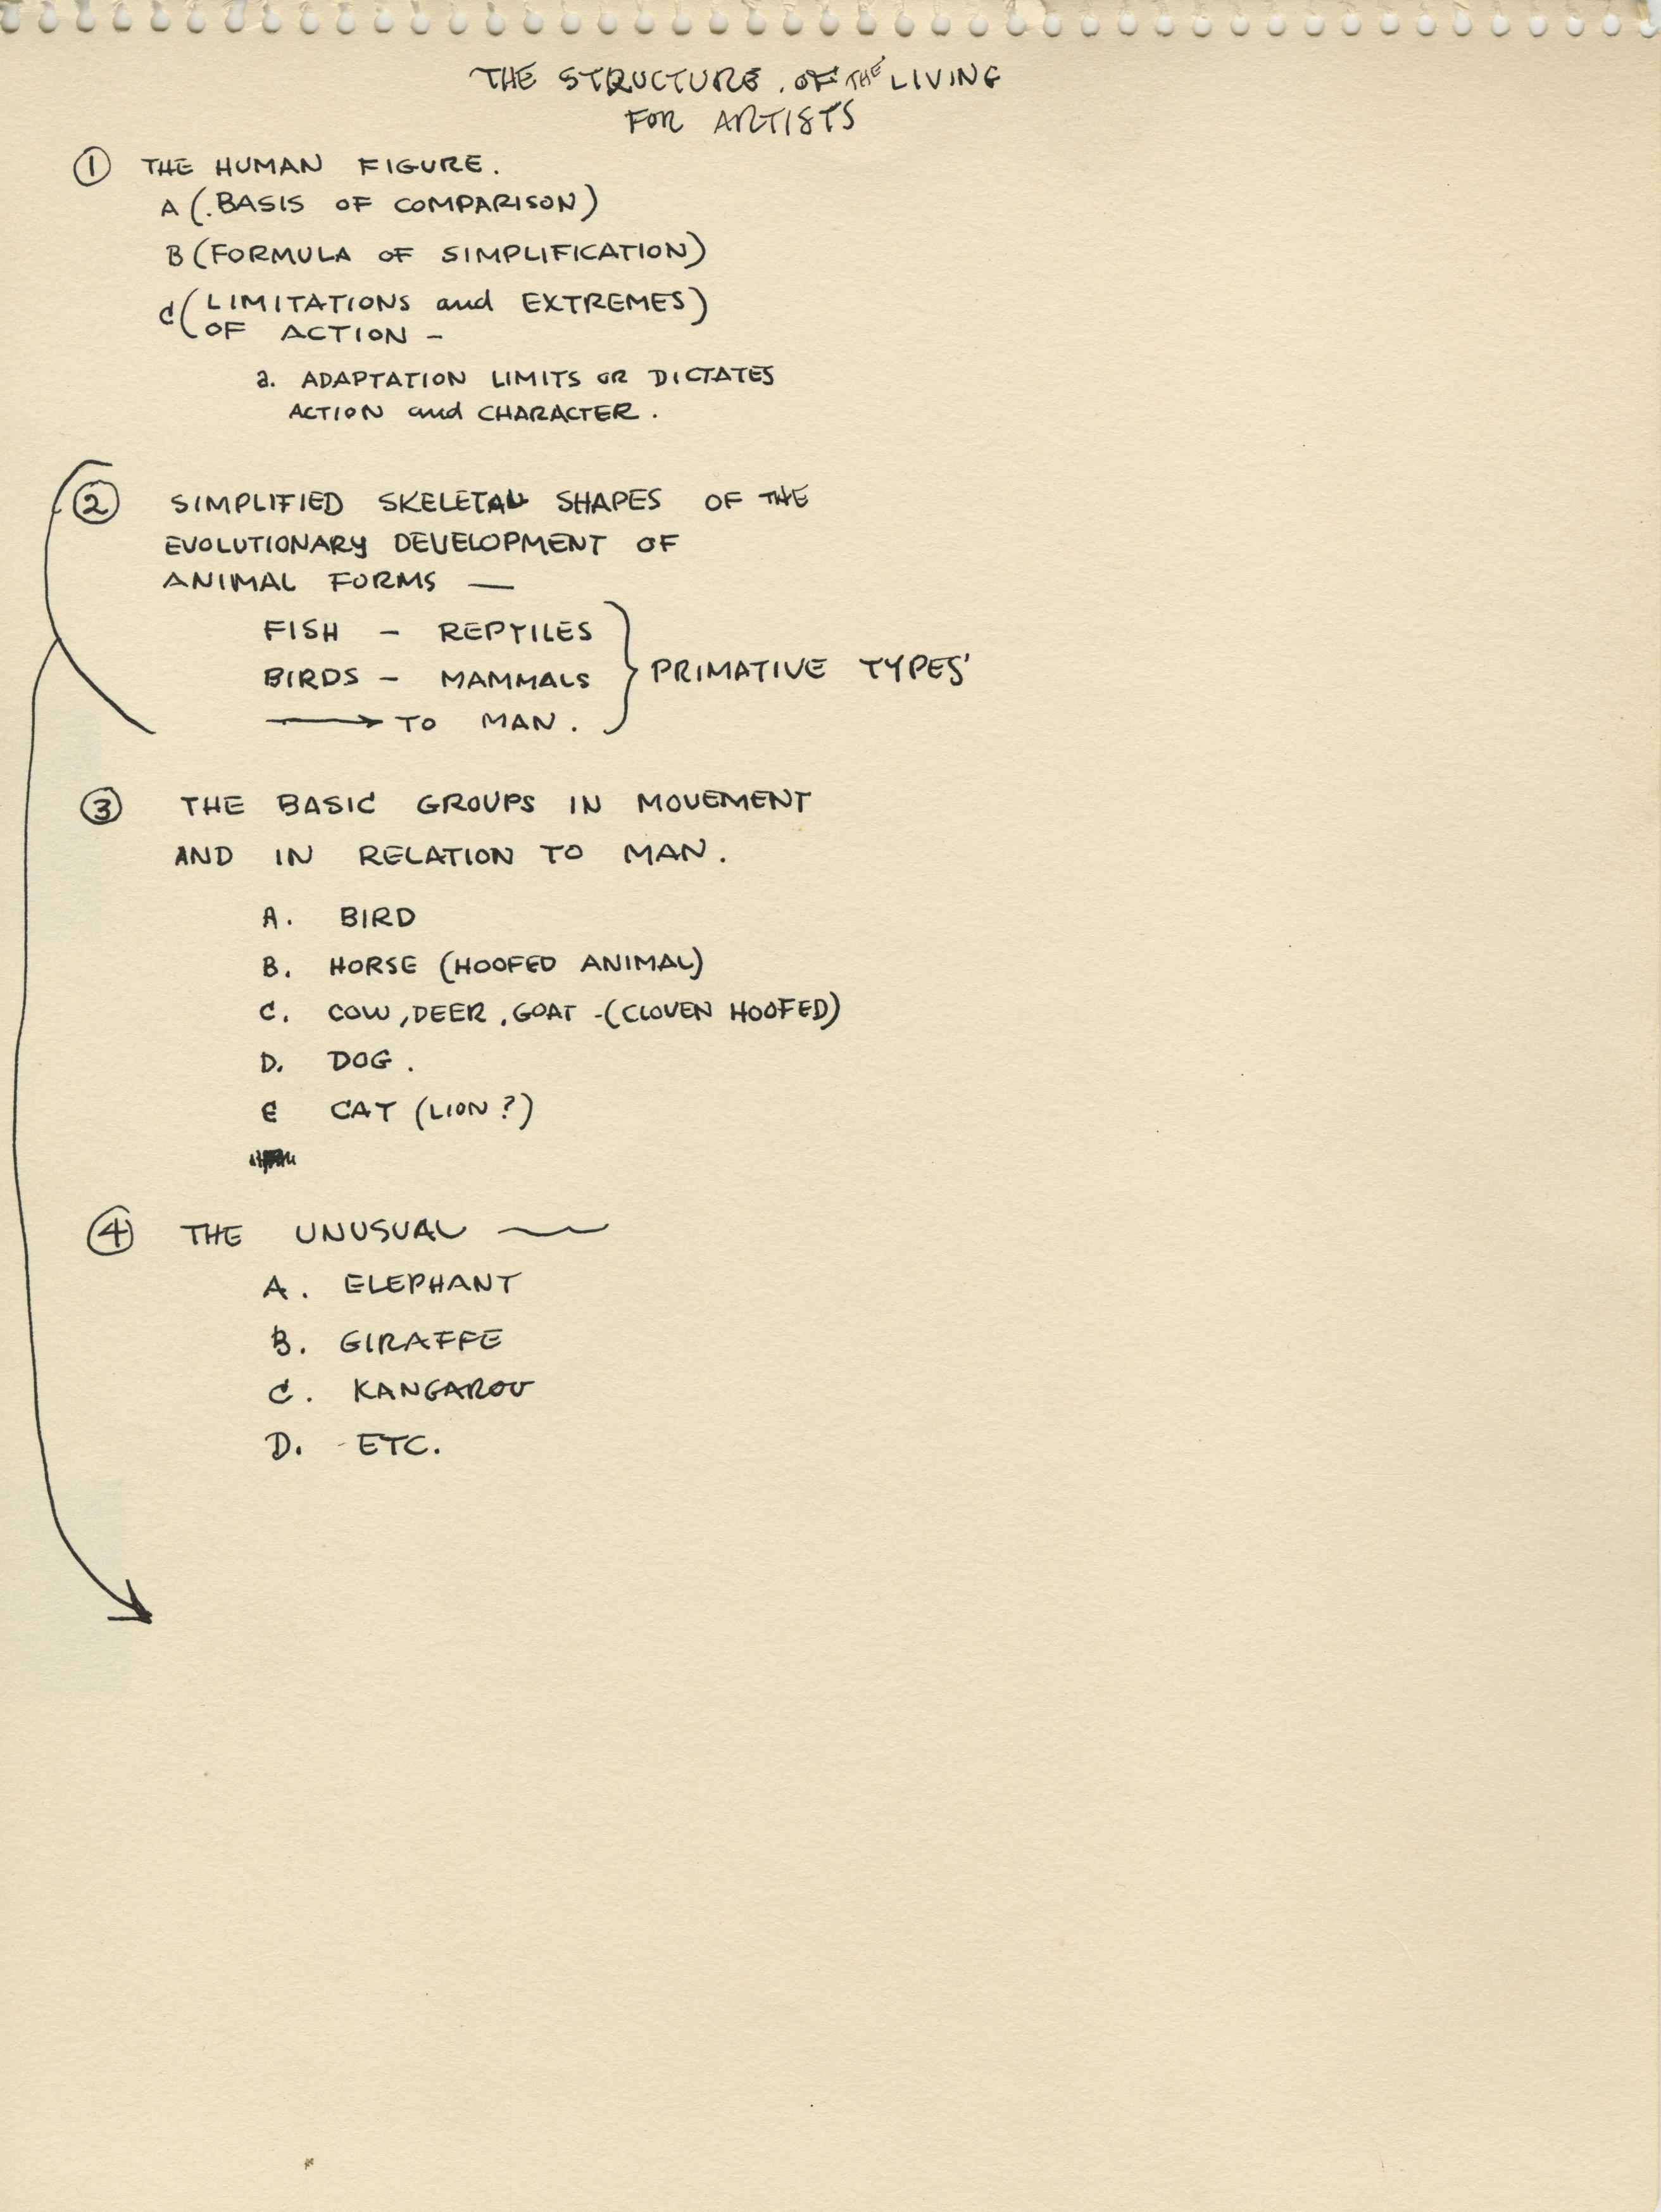 THE STRUCTURE. OF THE LIVING
FOR ARTISTS
① THE HUMAN FIGURE.
A (. BASIS OF COMPARISON)
B (FORMULA OF SIMPLIFICATION)
C (LIMITATIONS and EXTREMES)
OF ACTION –
a. ADAPTATION LIMITS OR DICTATES
ACTION and CHARACTER.
② SIMPLIFIED SKELETAL SHAPES OF THE
EVOLUTIONARY DEVELOPMENT OF
ANIMAL FORMS —
FISH – REPTILES
BIRDS – MAMMALS } PRIMATIVE TYPES'
⟶ TO MAN.
③ THE BASIC GROUPS IN MOVEMENT
AND IN RELATION TO MAN.
A. BIRD
B. HORSE (HOOFED ANIMAL)
C. COW, DEER, GOAT -(CLOVEN HOOFED)
D. DOG.
E CAT (LION?)
④ THE UNUSUAL ——
A. ELEPHANT
B. GIRAFFE
C. KANGAROO
D. - ETC.